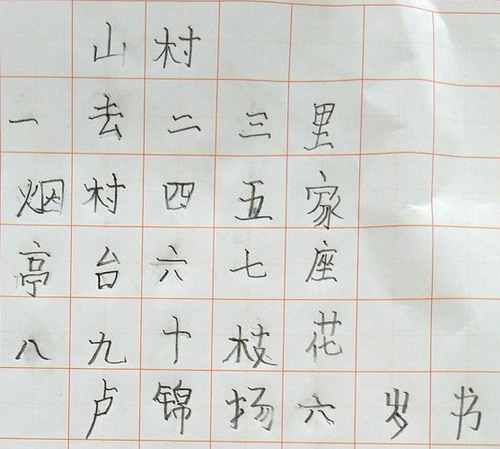 山村
一去二三里
烟村四五家
亭台六七座
八九十枝花
卢锦扬六岁书